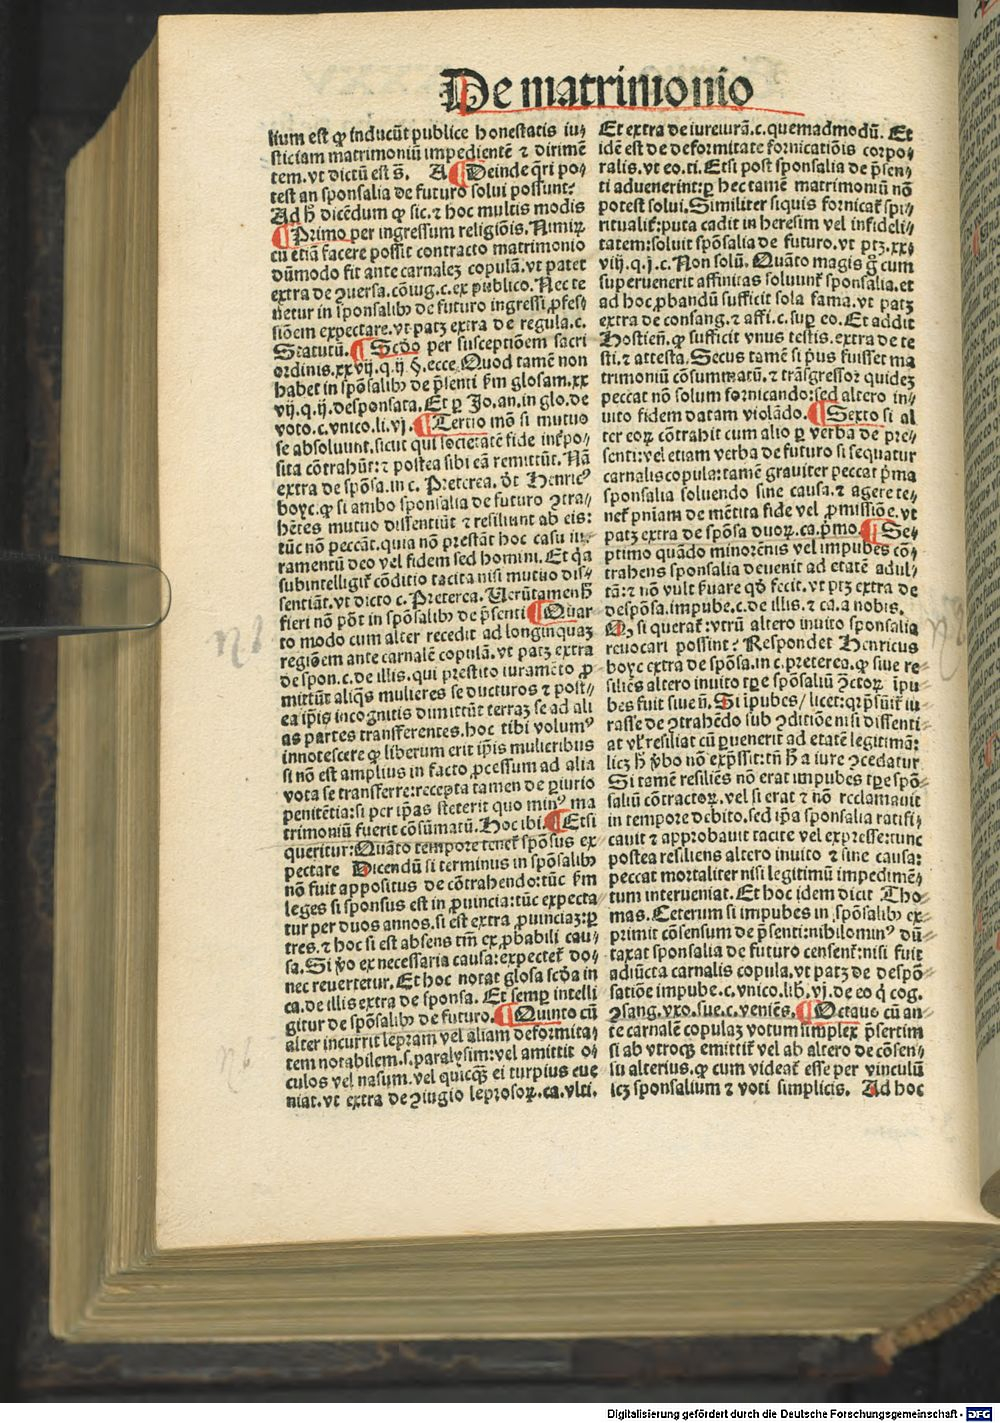 De matrimonio
lium est ꝙ inducūt publice honestatis iu⸗
sticiam matrimoniū impedientē ⁊ dirimē
tem. vt dictū est s̄. A ¶ Deinde q̄ri po⸗
test an sponsalia de futuro solui possunt:
Ad h̄ dicēdum ꝙ sic. ⁊ hoc multis modis
¶ Primo per ingressum religiōis. Nimiꝝ
cū etiā facere possit contracto matrimonio
dūmodo fit ante carnaleꝫ copulā. vt patet
extra de ꝯuersa. cōiug. c. ex publico. Nec te
netur in sponsalibꝰ de futuro ingressi ꝓfes⸗
siōem expectare. vt patꝫ extra de regula. c.
Statutū. ¶ Scd̄o per susceptiōem sacri
ordinis. xxvij. q. ij §. ecce. Quod tamē non
habet in spōsalibꝰ de p̄senti fm̄ glosam. xx
vij. q. ij. desponsata. Et ꝑ Jo. an. in glo. de
voto. c. vnico. li. vj. ¶ Tertio mō si mutuo
se absoluunt. sicut qui societatē fide int̄po⸗
sita cōtrahūt: ⁊ postea sibi eā remittūt. Nā
extra de spōsa. in c. Preterea. d̄t Henricꝰ
boyc. ꝙ si ambo sponsalia de futuro ꝯtra⸗
hētes mutuo dissentiūt ⁊ resiliunt ab eis:
tūc nō peccāt. quia nō prestāt hoc casu iu⸗
ramentū deo vel fidem sed homini. Et q̄a
subintelligit̄ cōditio tacita nisi mutuo dis⸗
sentiāt. vt dicto c. Preterea. Verūtamen h̄
fieri nō pōt in spōsalibꝰ de p̄senti ¶ Quar
to modo cum alter recedit ad longinquaꝫ
regiōem ante carnalē copulā. vt patꝫ extra
de spon. c. de illis. qui prestito iuramēto ꝓ
mittūt aliq̄s mulieres se ducturos ⁊ post⸗
ea ip̄is incognitis dimittūt terraꝫ se ad ali
as partes transferentes. hoc tibi volumꝰ
innotescere ꝙ liberum erit ip̄is mulieribus
si nō est amplius in facto ꝓcessum ad alia
vota se transferre: recepta tamen de ꝑiurio
penitētia: si per ip̄as steterit quo minꝰ ma
trimoniū fuerit cōsūmatū. Hoc ibi. ¶ Etsi
queritur: Quāto tempore tenet̄ spōsus ex
pectare Dicendū si terminus in spōsalibꝰ
nō fuit appositus de cōtrahendo: tūc fm̄
leges si sponsus est in ꝓuincia: tūc expecta
tur per duos annos. si est extra ꝓuinciaꝫ: ꝑ
tres. ⁊ hoc si est absens tm̄ ex ꝓbabili cau⸗
sa. Si v̄o ex necessaria causa: expectet̄ do⸗
nec reuertetur. Et hoc notat glosa scd̄a in
ca. de illis extra de sponsa. Et semꝑ intelli
gitur de spōsalibꝰ de futuro. ¶ Quinto cū
alter incurrit lepram vel aliam deformita⸗
tem notabilem. s. paralysim: vel amittit o⸗
culos vel nasum. vel quicqꝫ ei turpius eue
niat. vt extra de ꝯiugio leprosoꝝ. ca. vlti.
Et extra de iureiurā. c. quemadmodū. Et
idē est de deformitate fornicatiōis corpo⸗
ralis. vt eo. ti. Etsi post sponsalia de p̄sen⸗
ti aduenerint: ꝑ hec tamē matrimoniū nō
potest solui. Similiter siquis fornicat̄ spi⸗
ritualit̄: puta cadit in heresim vel infideli⸗
tatem: soluit spōsalia de futuro. vt ptꝫ. xx⸗
viij. q. j. c. Non solū. Quāto magis g̊ cum
superuenerit affinitas soluunt̄ sponsalia. et
ad hoc ꝓbandū sufficit sola fama. vt patꝫ
extra de consang. ⁊ affi. c. suꝑ eo. Et addit
Hostien̄. ꝙ sufficit vnus testis. extra de te
sti. ⁊ attesta. Secus tamē si p̄us fuisset ma
trimoniū cōsummatū. ⁊ trāsgressor quideꝫ
peccat nō solum fornicando: sed altero in⸗
uito fidem datam violādo. ¶ Sexto si al
ter eoꝝ cōtrahit cum alio ꝑ verba de pre⸗
senti: vel etiam verba de futuro si sequatur
carnalis copula: tamē grauiter peccat p̄ma
sponsalia soluendo sine causa. ⁊ agere te⸗
net̄ pn̄iam de mētita fide vel ꝓmissiōe. vt
patꝫ extra de spōsa duoꝝ. ca. p̄mo. ¶ Se⸗
ptimo quādo minorēnis vel impubes cō⸗
trahens sponsalia deuenit ad etatē adul⸗
tā: ⁊ nō vult ẜuare qd̄ fecit. vt ptꝫ extra de
despōsa. impube. c. de illis. ⁊ ca. a nobis.
Q, si querat̄: vtrū altero inuito sponsalia
reuocari possint: Respondet Henricus
boyc extra de spōsa. in c. preterea. ꝙ siue re⸗
siliēs altero inuito tꝑe spōsaliū ꝯctoꝝ īpu⸗
bes fuit siue n̄. Si īpubes / licet: qꝛ p̄sūit̄ iu⸗
rasse de ꝯtrahēdo sub ꝯditiōe nisi dissenti⸗
at vl̄ resiliat cū ꝑuenerit ad etatē legitimā:
licꝫ h̄ v̄bo nō exp̄ssit: tn̄ h̄ a iure ꝯcedatur
Si tamē resiliēs nō erat impubes tꝑe spō⸗
saliū cōtractoꝝ. vel si erat ⁊ nō reclamauit
in tempore debito. sed ip̄a sponsalia ratifi⸗
cauit ⁊ approbauit tacite vel expresse: tunc
postea resiliens altero inuito ⁊ sine causa:
peccat mortaliter nisi legitimū impedimē⸗
tum interueniat. Et hoc idem dicit Tho⸗
mas. Ceterum si impubes in spōsalibꝰ ex⸗
primit cōsensum de p̄senti: nihilominꝰ dū⸗
taxat sponsalia de futuro censent̄: nisi fuit
adiūcta carnalis copula. vt patꝫ de despō⸗
satiōe impube. c. vnico. lib. vj. de eo q̄ cog.
ꝯsang. vxo. sue. c. veniēs. ¶ Octauo cū an⸗
te carnalē copulaꝫ votum simplex p̄sertim
si ab vtroqꝫ emittit̄ vel ab altero de cōsen⸗
su alterius. ꝙ cum videat̄ esse per vinculū
icꝫ sponsalium ⁊ voti simplicis. Ad hoc
Digitalisierung gefördert durch die Deutsche Forschungsgemeinschaft - DFG